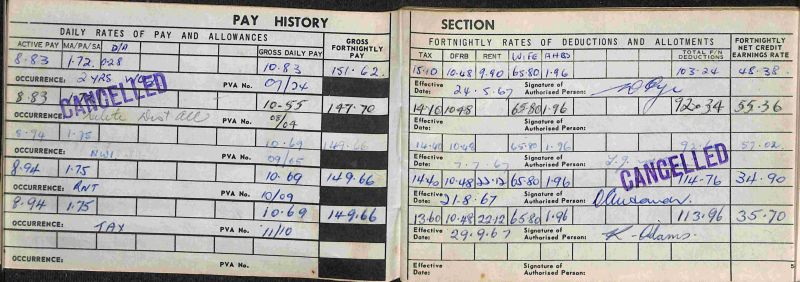 PAY HISTORY
DAILY RATES OF PAY AND ALLOWANCES
GROSS FORTNIGHTLY PAY
ACTIVE PAY MA/PA/SA D/A GROSS DAILY PAY
8.83 1.72 .028 10.83 151.62
OCCURRENCE: 2 YRS PVA No. 07/24
CANCELLED
8.83 10.55 147.70
OCCURRENCE: Dist All PVA No. 08/04
8.94 1.75 10.69 149.66
OCCURRENCE: NWI PVA No. 09/05
8.94 1.75 10.69 149.66
OCCURRENCE: RNT PVA No. 10/09
8.94 1.75 10.69 149.66
OCCURRENCE: TAX PVA No. 11/10
OCCURRENCE: PVA No.
SECTION
FORTNIGHTLY RATES OF DEDUCTIONS AND ALLOTMENTS
FORTNIGHTLY NET CREDIT EARNINGS RATE
TAX DFRB RENT WIFE AHBS TOTAL F/N DEDUCTIONS
15.10 10.48 9.90 65.80 1.96 103.24 48.38
Effective Date: 24.5.67 Signature of Authorised Person:
14.10 10.48 65.80 1.96 92.34 55.36
Effective Date: Signature of Authorised Person:
14.40 10.48 65.80 1.96 57.02
Effective Date: 7.7.67 Signature of Authorised Person:
CANCELLED
14.40 10.48 22.12 65.80 1.96 114.76 34.90
Effective Date: 21.8.67 Signature of Authorised Person:
13.60 10.48 22.12 65.80 1.96 113.96 35.70
Effective Date: 29.9.67 Signature of Authorised Person: K. Adams.
Effective Date: Signature of Authorised Person:
5